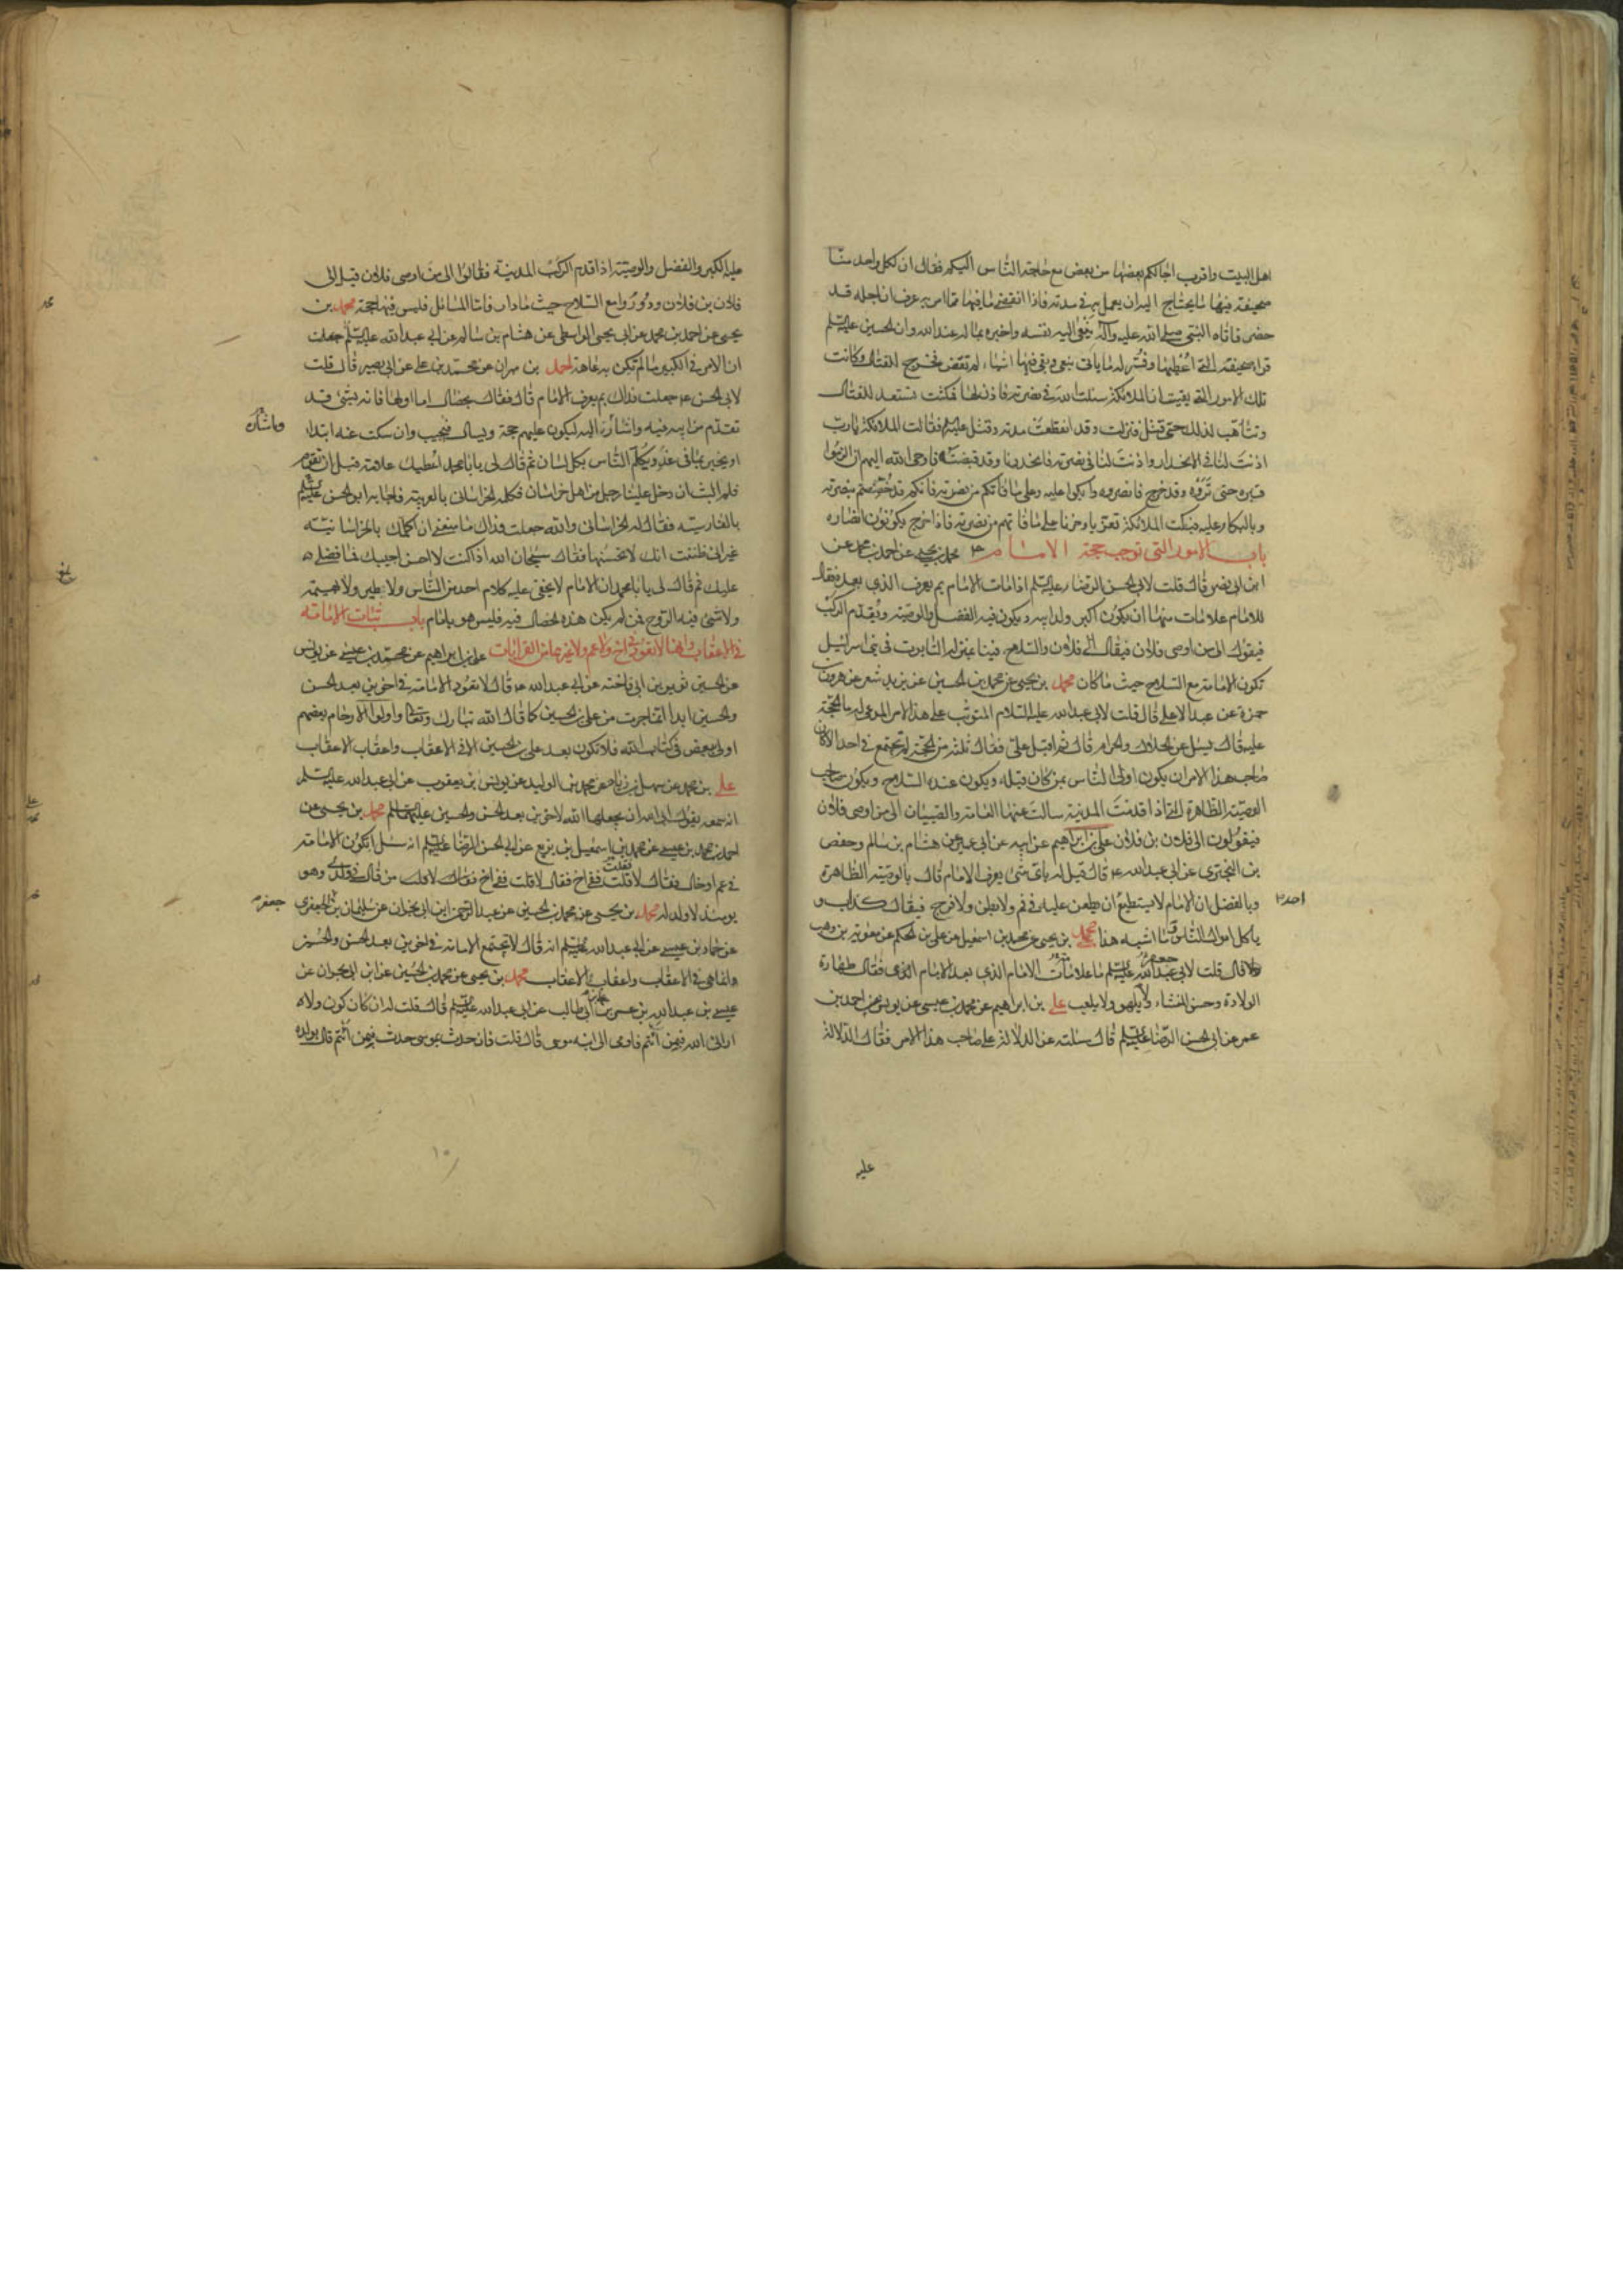 اهل البيت واقرب اجالكم بعضها من بعض مع حاجة الناس اليكم فقال ان لكل واحد منا
صحيفة فيها ما يحتاج اليه ان يعمل به في مدته فاذا انقضى ما فيها مما امر به عرف ان اجله قد
حضر فاتاه النبي صلى الله عليه وآله ينعى اليه نفسه واخبره بما له عند الله وان الحسين عليه السلم
قرا صحيفته التي اعطيها وفسر له ما ياتى بنعى وبقى فيها اشياء لم تقض فخرج للقتال وكانت
تلك الامور التي بقيت ان الملائكة سئلت الله في نصرته فاذن لها فمكثت تستعد للقتال
وتتأهب لذلك حتى قتل فنزلت وقد انقطعت مدته وقتل عليه فقالت الملائكة يا رب
اذنت لنا في الانحدار واذنت لنا في نصرته فانحدرنا وقد قبضته فاوحى الله اليهم ان الزموا
قبره حتى تروه وقد خرج فانصروه وابكوا عليه وعلى ما فاتكم من نصرته فانكم قد خصصتم بنصرته
وبالبكاء عليه فبكت الملائكة تعزيا وحزنا على ما فاتهم من نصرته فاذا خرج يكونون انصاره
باب الامور التي توجب حجة الامام ٣ محمد بن يحيى عن احمد بن محمد عن
ابن ابي نصر قال قلت لابي الحسن الرضا عليه السلم اذا مات الامام بم يعرف الذي بعده فقال
للامام علامات منها ان يكون اكبر ولد ابيه ويكون فيه الفضل والوصية ويقدم الركب
فيقول الى من اوصى فلان فيقال الى فلان والسلاح فينا بمنزلة التابوت في بني اسرائيل
تكون الامامة مع السلاح حيث ما كان محمد بن يحيى عن محمد بن الحسين عن يزيد شعر عن هرون بن
حمزة عن عبد الاعلى قال قلت لابي عبد الله عليه السلام المتوثب على هذا الامر المدعى له ما الحجة
عليه قال يسئل عن الحلال والحرام قال ثم اقبل علي فقال ثلثة من الحجة لم تجتمع في احد الا كان
صاحب هذا الامر ان يكون اولى الناس بمن كان قبله ويكون عنده السلاح ويكون صاحب
الوصية الظاهرة التي اذا قدمت المدينة سالت عنها العامة والصبيان الى من اوصى فلان
فيقولون الى فلان بن فلان علي بن ابراهيم عن ابيه عن ابي عمير عن هشام بن سالم وحفص
بن البختري عن ابي عبد الله ع قال قيل له باي شئ يعرف الامام قال بالوصية الظاهرة
وبالفضل ان الامام لا يستطيع ان يطعن عليه في فم ولا بطن ولا فرج فيقال كذاب و
احد
ياكل اموال الناس وما اشبه هذا محمد بن يحيى عن محمد بن اسمعيل عن علي بن الحكم عن معوية بن وهب
قال قلت لابي عبد الله عليه السلم ما علامات الامام الذي بعد الامام الذي فقال طهارة
جعفر
الولادة وحسن المنشاء ولا يلهو ولا يلعب علي بن ابراهيم عن محمد بن عيسى عن يونس عن احمد بن
عمر عن ابي الحسن الرضا عليه السلم قال سئلته عن الدلالة على صاحب هذا الامر فقال الدلالة
عليه
عليه الكبر والفضل والوصية اذا قدم الركب المدينة فقالوا الى من اوصى فلان قيل الى
فلان بن فلان ودوروا مع السلاح حيث ما دار فاما المسائل فليس فيها حجة محمد بن
يحيى عن احمد بن محمد عن ابي يحيى الواسطى عن هشام بن سالم عن ابي عبد الله عليه السلم جعلت
ان الامر في الكبير ما لم تكن به عاهة احمد بن مهران عن محمد بن علي عن ابي بصير قال قلت
لابي الحسن ع جعلت فداك بم يعرف الامام قال فقال بخصال اما اولها فانه بشئ قد
تقدم من ابيه فيه واشارة اليه ليكون عليهم حجة ويسال فيجيب وان سكت عنه ابتدا
او يخبر بما في غد ويكلم الناس بكل لسان ثم قال لي يا با محمد اعطيك علامة قبل ان تقوم
فلم البث ان دخل علينا رجل من اهل خراسان فكلمه الخراسانى بالعربية فاجابه ابو الحسن عليه السلم
بالفارسية فقال له الخراسانى والله جعلت فداك ما منعنى ان اكلمك بالخراسانية
غير انى ظننت انك لا تحسنها فقال سبحان الله اذا كنت لا احسن اجيبك فما فضلى
عليك ثم قال لي يا با محمد ان الامام لا يخفى عليه كلام احد من الناس ولا طير ولا بهيمة
ولا شئ فيه الروح فمن لم يكن هذه الخصال فيه فليس هو بامام باب ثبات الامامة
في الاعقاب وانها لا تعود في اخ ولا عم ولا غيرهما من القرابات علي بن ابراهيم عن محمد بن عيسى عن يونس
عن الحسين ثوير بن ابي فاخته عن ابي عبد الله ع قال لا تعود الامامة في اخوين بعد الحسن
والحسين ابدا انما جرت من علي بن الحسين كما قال الله تبارك وتعالى واولوا الارحام بعضهم
اولى ببعض في كتاب الله فلا تكون بعد علي بن الحسين الا في الاعقاب واعقاب الاعقاب
علي بن محمد عن سهل بن زياد عن محمد بن الوليد عن يونس بن يعقوب عن ابي عبد الله عليه السلم
انه سمعه يقول ابى الله ان يجعلها لاخوين بعد الحسن والحسين عليهما السلم محمد بن يحيى عن
احمد بن محمد بن عيسى عن محمد بن اسمعيل بن بزيع عن ابي الحسن الرضا عليه السلم انه سئل اتكون الامامة
في عم او خال فقال لا فقلت ففي اخ فقال لا قلت ففي اخ فقال لا قلت من قال في ولدي وهو
يومئذ لا ولد له محمد بن يحيى عن محمد بن الحسين عن عبد الرحمن ابن ابي نجران عن سليمان بن الجعفري
جعفر
عن حماد بن عيسى عن ابي عبد الله عليه السلم انه قال لا تجتمع الامامة في اخوين بعد الحسن والحسين
وانما هي في الاعقاب واعقاب الاعقاب محمد بن يحيى عن محمد بن الحسين عن ابن ابي نجران عن
عيسى بن عبد الله بن عمر بن علي بن ابي طالب عن ابي عبد الله عليه السلم قال قلت له ان كان كون ولا
ارانى الله فبمن ائتم فاومى الى ابنه موسى قال قلت فان حدث بموسى حدث فبمن ائتم قال بولده